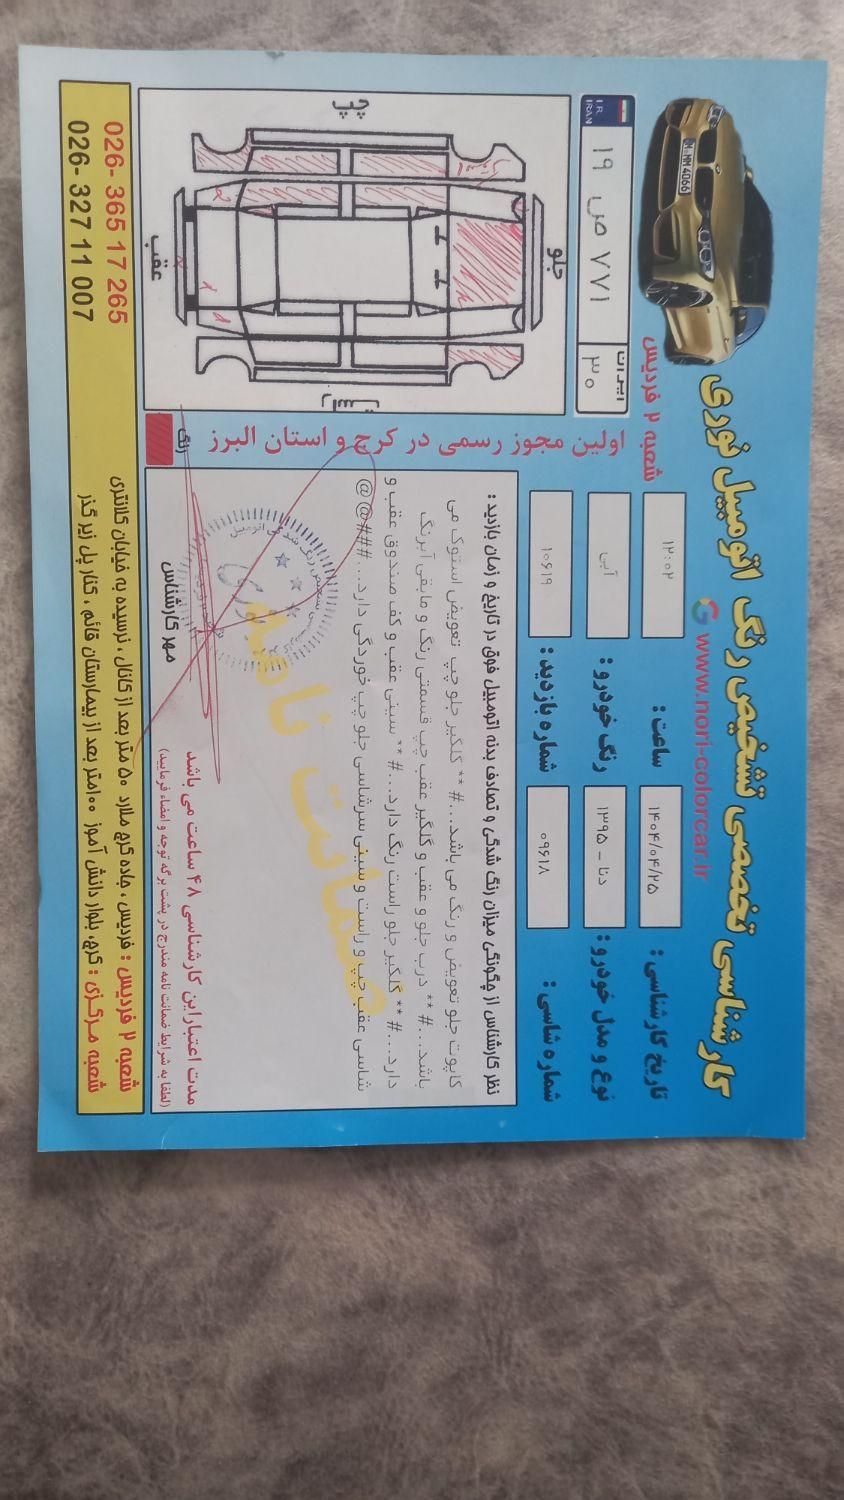 کارشناسی تخصصی تشخیص رنگ اتومبیل نوری
www.nori-colorcar.ir
شعبه ۲ فردیس
تاریخ کارشناسی : ۱۴۰۴/۰۴/۲۵
ساعت : ۱۲:۰۲
نوع و مدل خودرو : دنا - ۱۳۹۵
رنگ خودرو : آبی
شماره شاسی : ۰۹۶۱۸
شماره بازدید : ۱۰۶۱۹
I.R. IRAN
۱۹ ص ۷۷۱
ایران
۳۰
اولین مجوز رسمی در کرج و استان البرز
جلو
چپ
راست
عقب
رنگ
نظر کارشناس از چگونگی میزان رنگ شدگی و تصادف بدنه اتومبیل فوق در تاریخ و زمان بازدید :
کاپوت جلو تعویض و رنگ می باشد...# ** گلگیر جلو چپ تعویض استوک می
باشد...# ** درب جلو و عقب و گلگیر عقب چپ قسمتی رنگ و مابقی آبرنگ
دارد...# ** گلگیر جلو راست رنگ دارد...# ** سینی عقب و کف صندوق عقب و
شاسی عقب چپ و راست و سینی سرشاسی جلو چپ خوردگی دارد...###@@
ضمانت نامه
مهر کارشناس
مدت اعتبار این کارشناسی ۴۸ ساعت می باشد
(لطفا به شرایط ضمانت نامه مندرج در پشت برگه توجه و امضاء فرمایید)
شعبه ۲ فردیس : فردیس ، جاده کرج ملارد ۵۰ متر بعد از کانال ، نرسیده به خیابان کلانتری
026- 365 17 265
شعبه مرکزی : کرج، بلوار دانش آموز ۱۰۰متر بعد از بیمارستان قائم ، کنار پل زیر گذر
026- 327 11 007